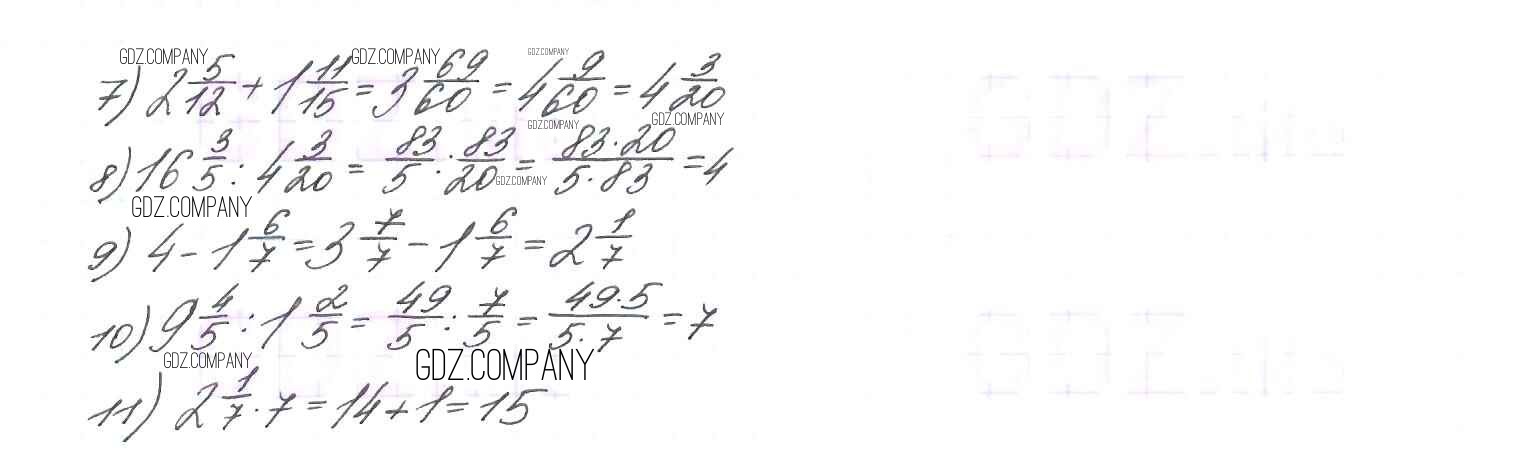 GDZ.COMPANY GDZ.COMPANY GDZ.COMPANY
7) 2 5/12 + 1 11/15 = 3 69/60 = 4 9/60 = 4 3/20
GDZ.COMPANY GDZ.COMPANY
8) 16 3/5 : 4 3/20 = 83/5 : 83/20 = 83·20/5·83 = 4
GDZ.COMPANY
GDZ.COMPANY
9) 4 - 1 6/7 = 3 7/7 - 1 6/7 = 2 1/7
10) 9 4/5 : 1 2/5 = 49/5 : 7/5 = 49·5/5·7 = 7
GDZ.COMPANY GDZ.COMPANY
11) 2 1/7 · 7 = 14 + 1 = 15